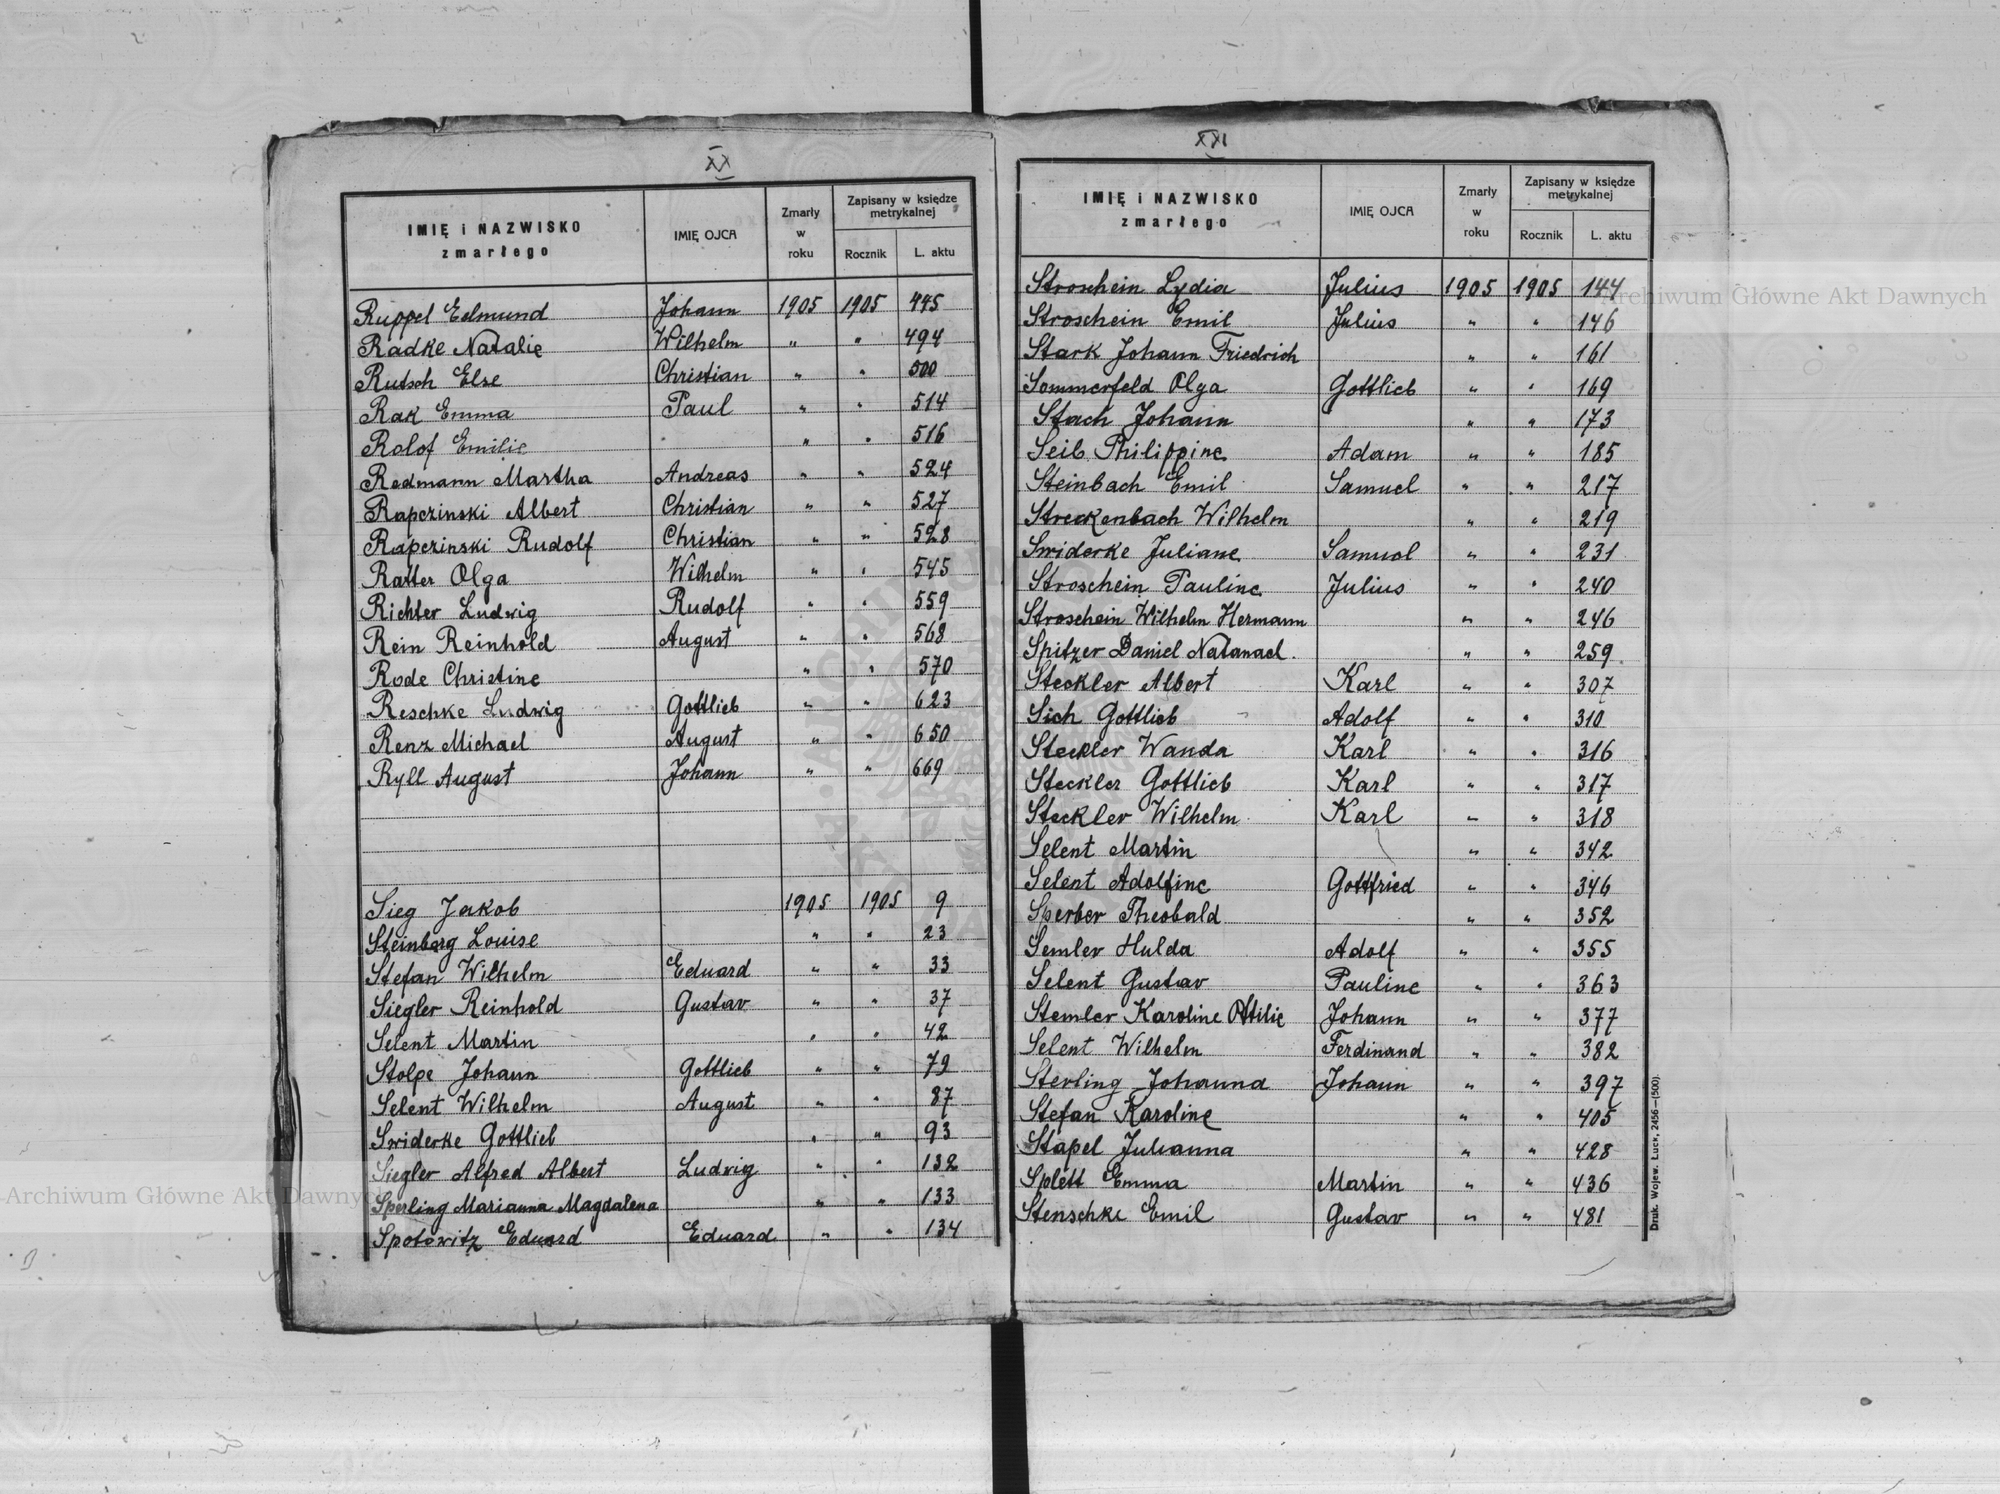 XX
IMIĘ i NAZWISKO zmarłego IMIĘ OJCA Zmarły w roku Zapisany w księdze metrykalnej Rocznik L. aktu
Ruppel Edmund Johann 1905 1905 445
Radke Natalie Wilhelm " " 494
Rutsch Else Christian " " 500
Rak Emma Paul " " 514
Rolof Emilie " " 516
Redmann Martha Andreas " " 524
Rapczinski Albert Christian " " 527
Rapczinski Rudolf Christian " " 528
Ratter Olga Wilhelm " " 545
Richter Ludwig Rudolf " " 559
Rein Reinhold August " " 568
Rode Christine " " 570
Reschke Ludwig Gottlieb " " 623
Renz Michael August " " 650
Ryll August Johann " " 669
Sieg Jakob 1905 1905 9
Steinberg Louise " " 23
Stefan Wilhelm Eduard " " 33
Siegler Reinhold Gustav " " 37
Selent Martin " " 42
Stolpe Johann Gottlieb " " 79
Selent Wilhelm August " " 87
Swiderke Gottlieb " " 93
Siegler Alfred Albert Ludwig " " 132
Sperling Marianna Magdalena " " 133
Spotowitz Eduard Eduard " " 134
XXI
IMIĘ i NAZWISKO zmarłego IMIĘ OJCA Zmarły w roku Zapisany w księdze metrykalnej Rocznik L. aktu
Stroschein Lydia Julius 1905 1905 144
Stroschein Emil Julius " " 146
Stark Johann Friedrich " " 161
Sommerfeld Olga Gottlieb " " 169
Stach Johann " " 173
Seib Philippine Adam " " 185
Steinbach Emil Samuel " " 217
Streckenbach Wilhelm " " 219
Swiderke Juliane Samuel " " 231
Stroschein Pauline Julius " " 240
Stroschein Wilhelm Hermann " " 246
Spitzer Daniel Natanael. " " 259
Steckler Albert Karl " " 307
Sich Gottlieb Adolf " " 310
Steckler Wanda Karl " " 316
Steckler Gottlieb Karl " " 317
Steckler Wilhelm Karl " " 318
Selent Martin " " 342
Selent Adolfine Gottfried " " 346
Sperber Theobald " " 352
Semler Hulda Adolf " " 355
Selent Gustav Pauline " " 363
Stemler Karoline Ottilie Johann " " 377
Selent Wilhelm Ferdinand " " 382
Sterling Johanna Johann " " 397
Stefan Karoline " " 405
Stapel Julianna " " 428
Splett Emma Martin " " 436
Stenschke Emil Gustav " " 481
Druk. Wojew. Łuck, 2456—(500).
Archiwum Główne Akt Dawnych
Archiwum Główne Akt Dawnych